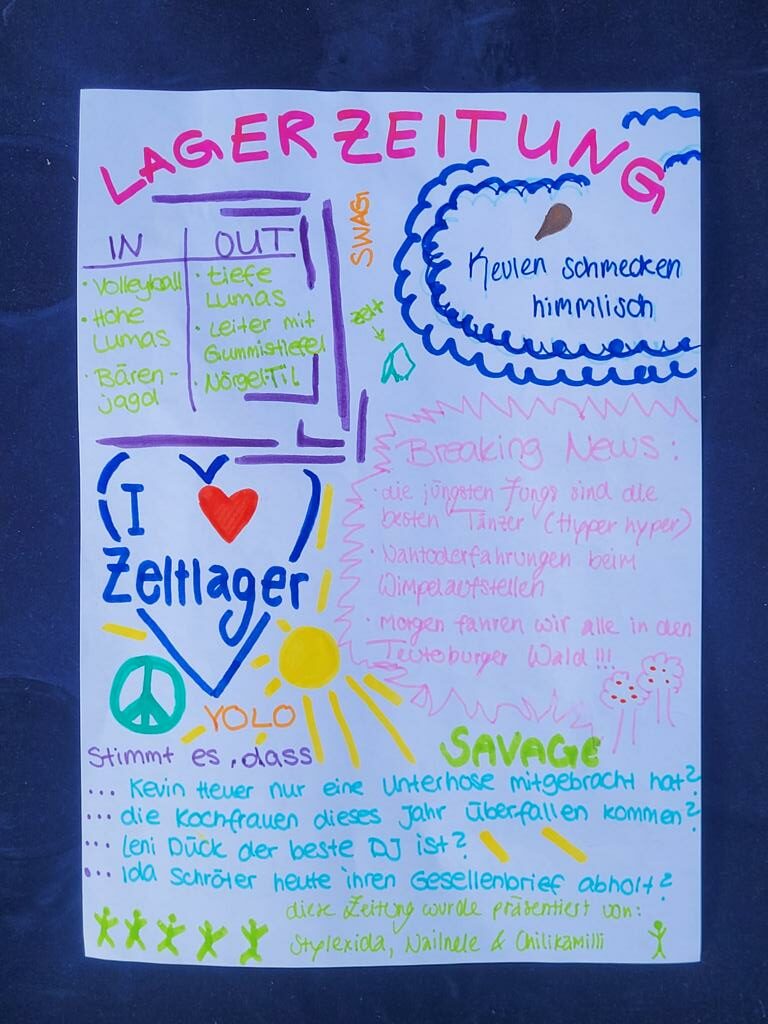 LAGERZEITUNG
IN OUT
· Volleyball
· Hohe
Lumas
· Bären-
jagd
· tiefe
Lumas
· Leiter mit
Gummistiefel
· Nörgel-Til
SWAG
zelt
Keulen schmecken
himmlisch
Breaking News:
· die jüngsten Jungs sind die
besten Tänzer (Hyper hyper)
· Nahtoderfahrungen beim
Wimpelaufstellen
· Morgen fahren wir alle in den
Teutoburger Wald!!!
I
Zeltlager
YOLO
SAVAGE
Stimmt es, dass
... Kevin Heuer nur eine Unterhose mitgebracht hat?
... die Kochfrauen dieses Jahr überfallen kommen?
... Leni Dück der beste DJ ist?
... Ida Schröter heute ihren Gesellenbrief abholt?
diese Zeitung wurde präsentiert von:
Stylexida, Nailnele & Chilikamilli